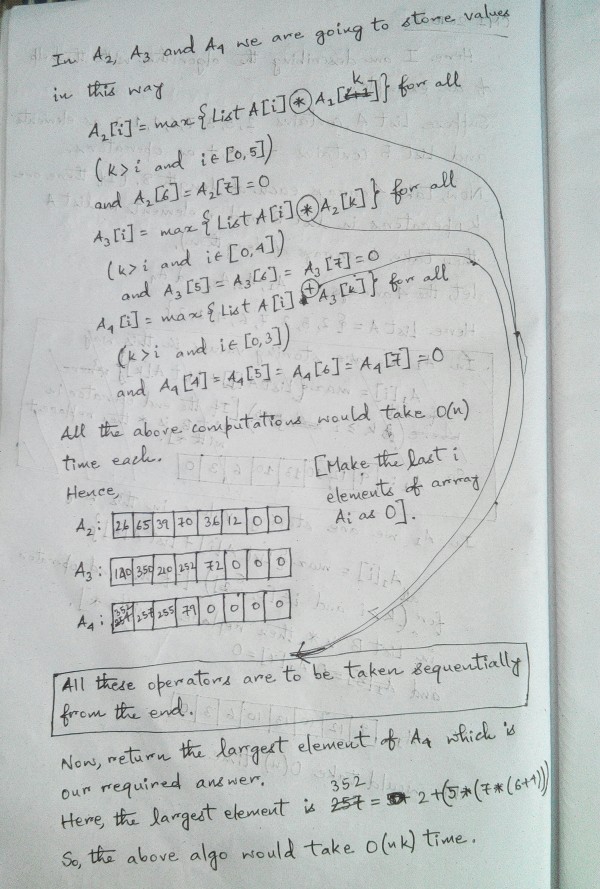 In A2, A3 and A4 we are going to store values
in this way
A2[i] = max{List A[i] * A1[k]} for all
(k>i and i∈[0,5])
and A2[6] = A2[7] = 0
A3[i] = max{List A[i] * A2[k]} for all
(k>i and i∈[0,4])
and A3[5] = A3[6] = A3[7] = 0
A4[i] = max{List A[i] + A3[k]} for all
(k>i and i∈[0,3])
and A4[4] = A4[5] = A4[6] = A4[7] = 0
All the above computations would take O(n)
time each.
[Make the last i
elements of array
Ai as 0].
Hence,
A2: 26 65 39 70 36 12 0 0
A3: 140 350 210 252 72 0 0 0
A4: 352 257 255 79 0 0 0 0
All these operators are to be taken sequentially
from the end.
Now, return the largest element of A4 which is
our required answer.
Here, the largest element is 352 = 2+(5*(7*(6+4)))
So, the above algo would take O(nk) time.